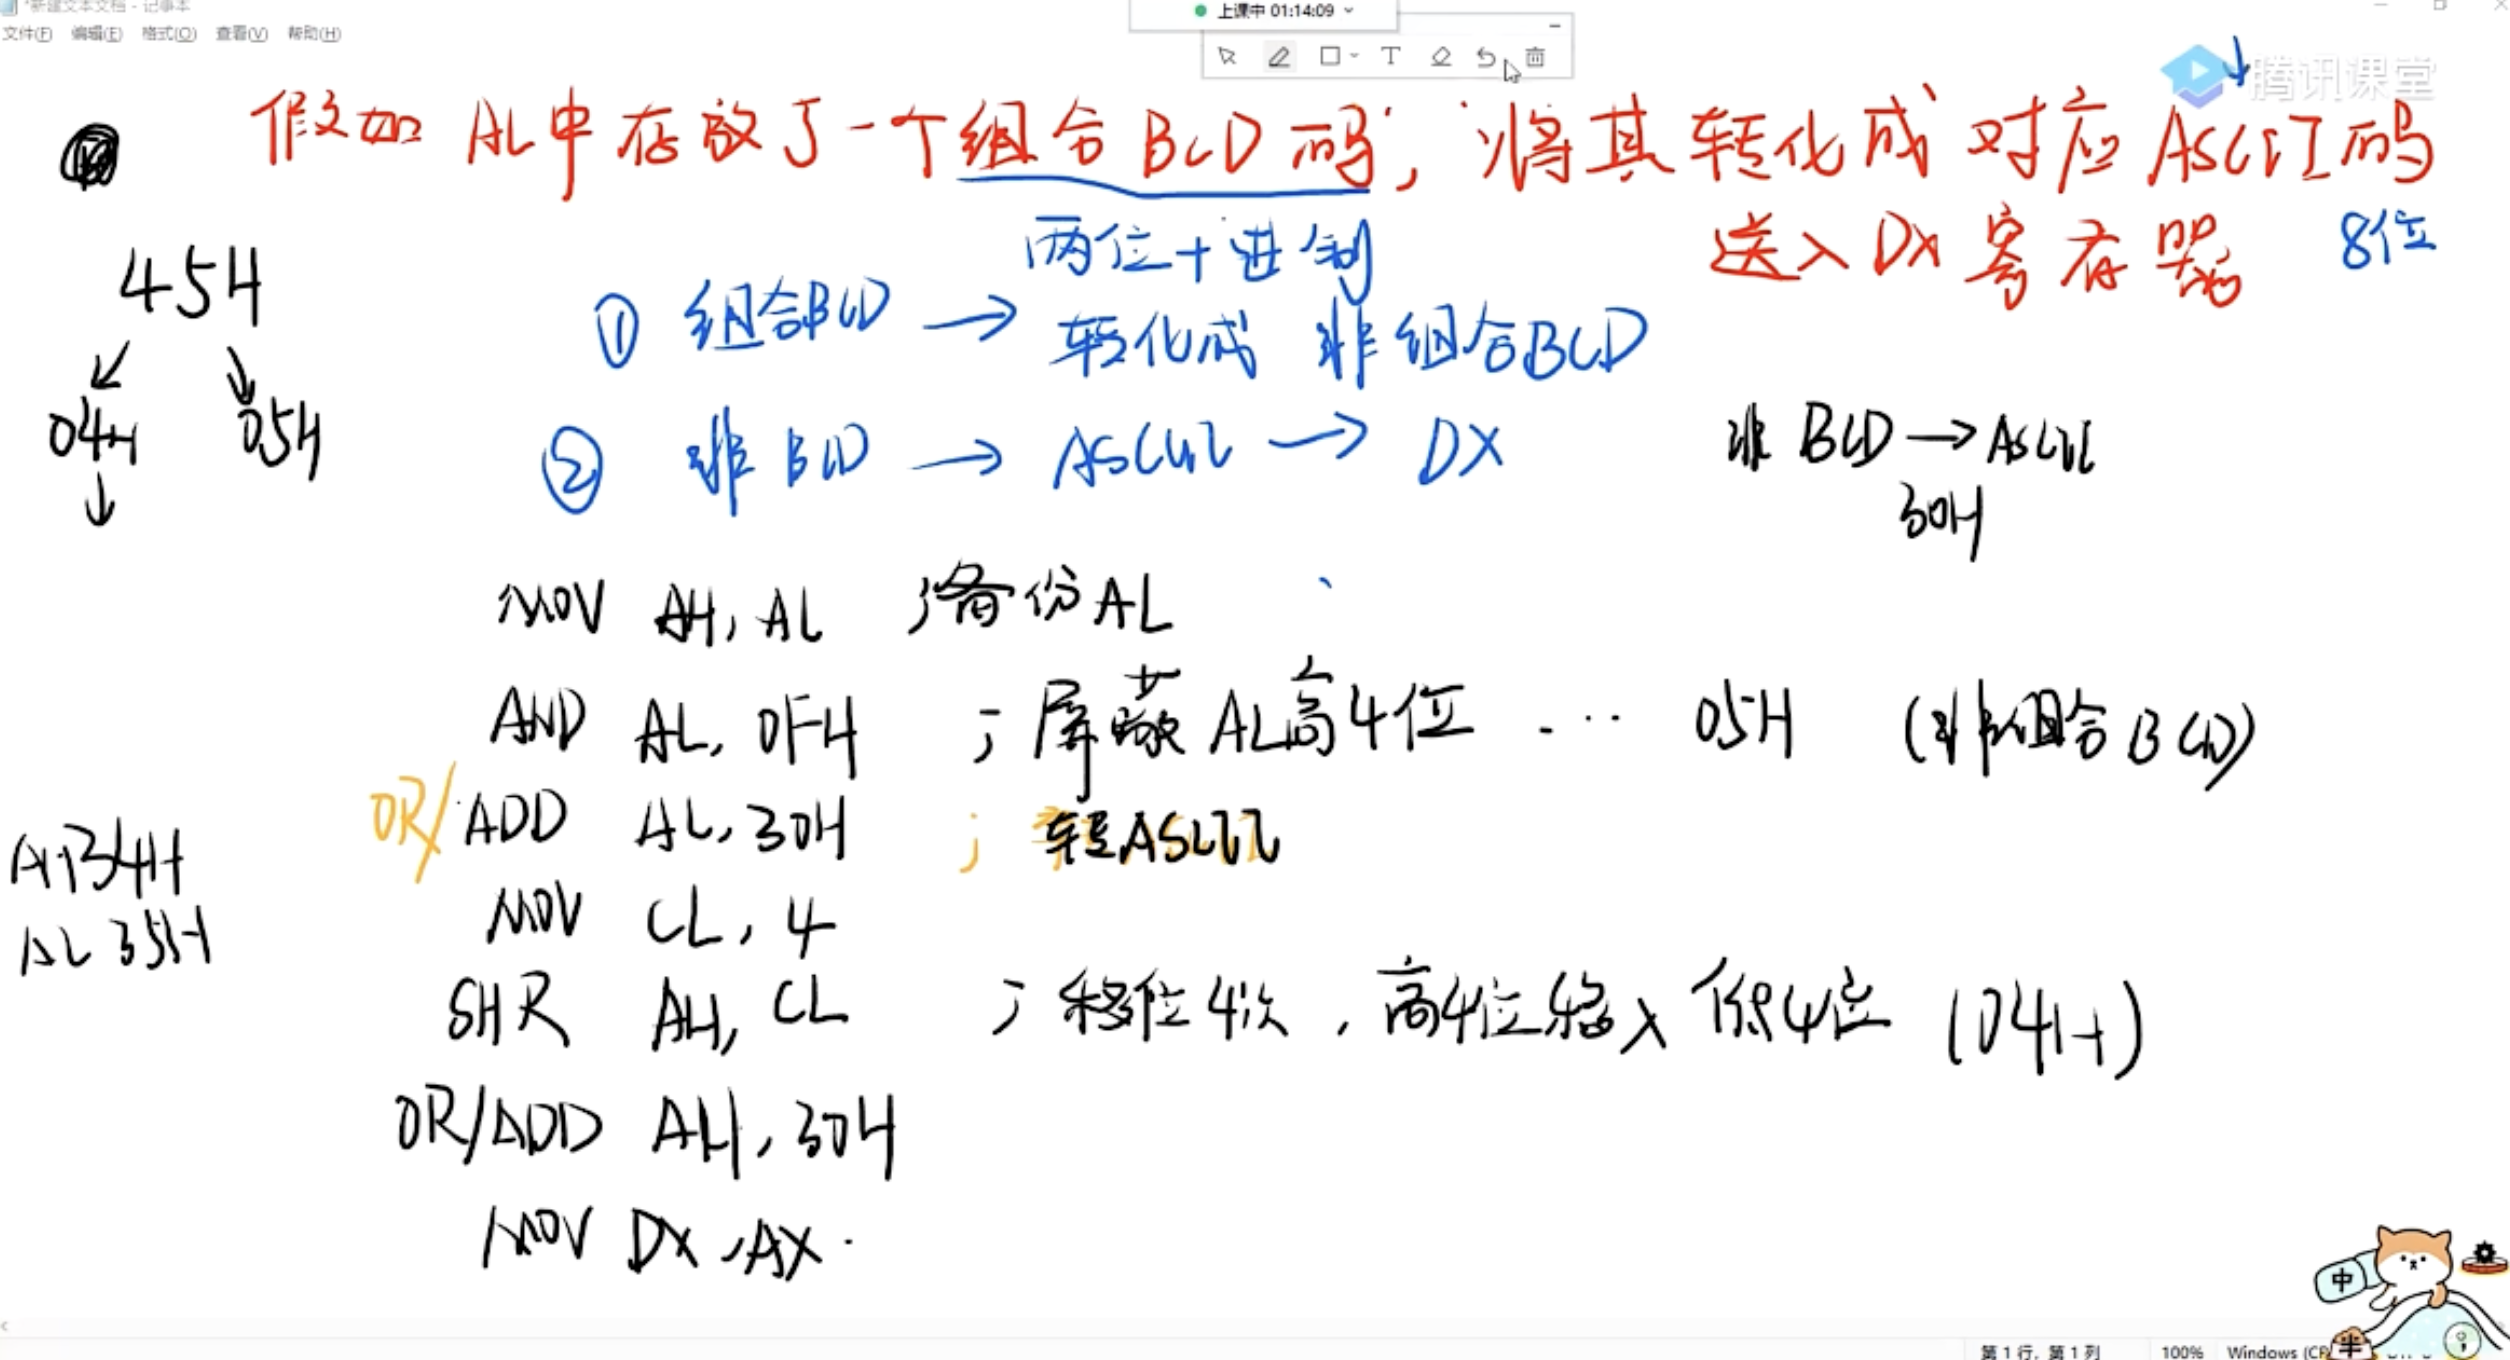 *新建文本文档 - 记事本
文件(F) 编辑(E) 格式(O) 查看(V) 帮助(H)
上课中 01:14:09
T
腾讯课堂
假如 AL中存放了一个组合BCD码，将其转化成对应ASCII码
送入DX寄存器 8位
两位十进制
45H
① 组合BCD → 转化成 非组合BCD
04H 05H
② 非BCD → ASCII → DX
非BCD → ASCII
30H
MOV AH, AL ;备份AL
AND AL, 0FH ;屏蔽AL高4位 ... 05H (非组合BCD)
OR/ADD AL, 30H ;转ASCII
AH 34H
AL 35H
MOV CL, 4
SHR AH, CL ;移位4次，高4位移入低4位 (04H)
OR/ADD AH, 30H
MOV DX, AX.
中
半
第 1 行，第 1 列 100% Windows (CR